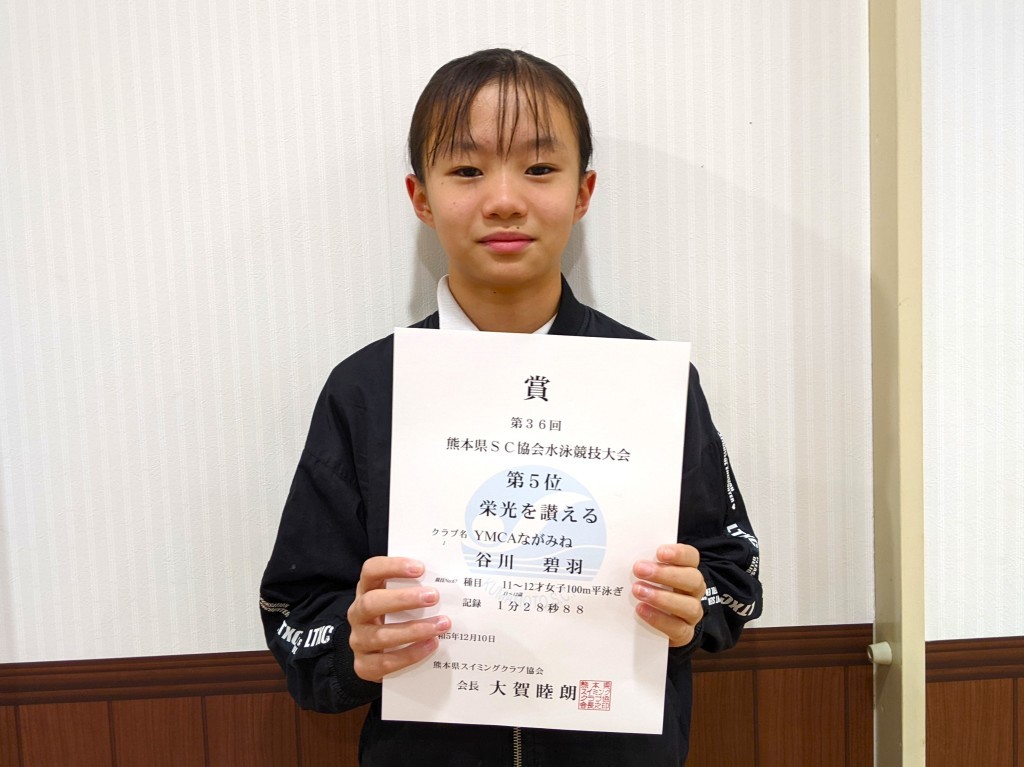 賞
第３６回
熊本県ＳＣ協会水泳競技大会
第５位
栄光を讃える
クラブ名 YMCAながみね
谷川 碧羽
種目 11～12才女子100m平泳ぎ
11～12歳
記録 １分２８秒８８
和5年12月10日
熊本県スイミングクラブ協会
会長 大賀睦朗
熊本県スイミングクラブ協会長之印
LTXG
LTXG